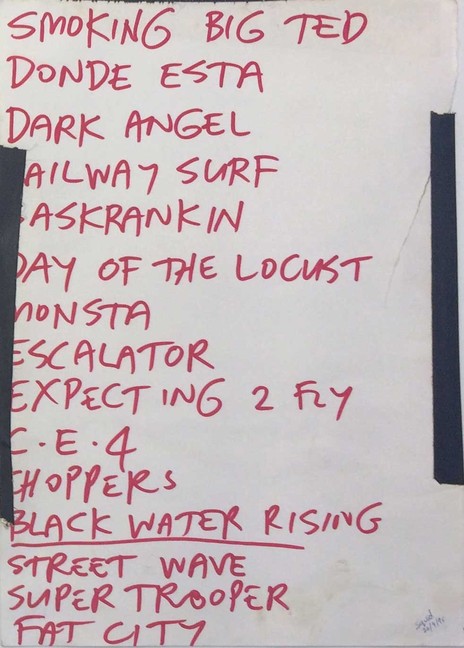 SMOKING BIG TED
DONDE ESTA
DARK ANGEL
AILWAY SURF
ASKRANKIN
DAY OF THE LOCUST
MONSTA
ESCALATOR
EXPECTING 2 FLY
C.E.4
CHOPPERS
BLACK WATER RISING
STREET WAVE
SUPER TROOPER
FAT CITY